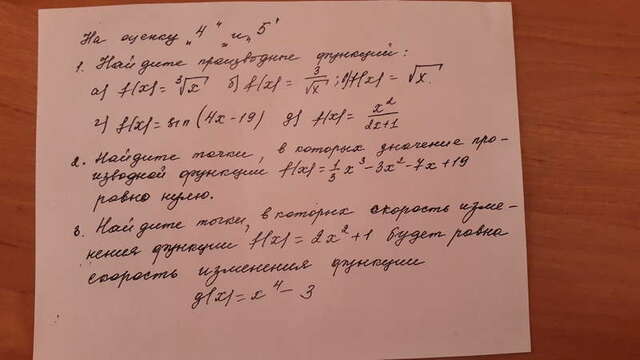 На оценку „4“ и „5“
1. Найдите производные функций:
а) f(x) = ∛x б) f(x) = 3/√x ; в) f(x) = √x.
г) f(x) = sin (4x - 19) д) f(x) = x²/(2x+1)
2. Найдите точки, в которых значение про-
изводной функции f(x) = 1/3 x³ - 3x² - 7x + 19
равно нулю.
3. Найдите точки, в которых скорость изме-
нения функции f(x) = 2x² + 1 будет равна
скорость изменения функции
g(x) = x⁴ - 3